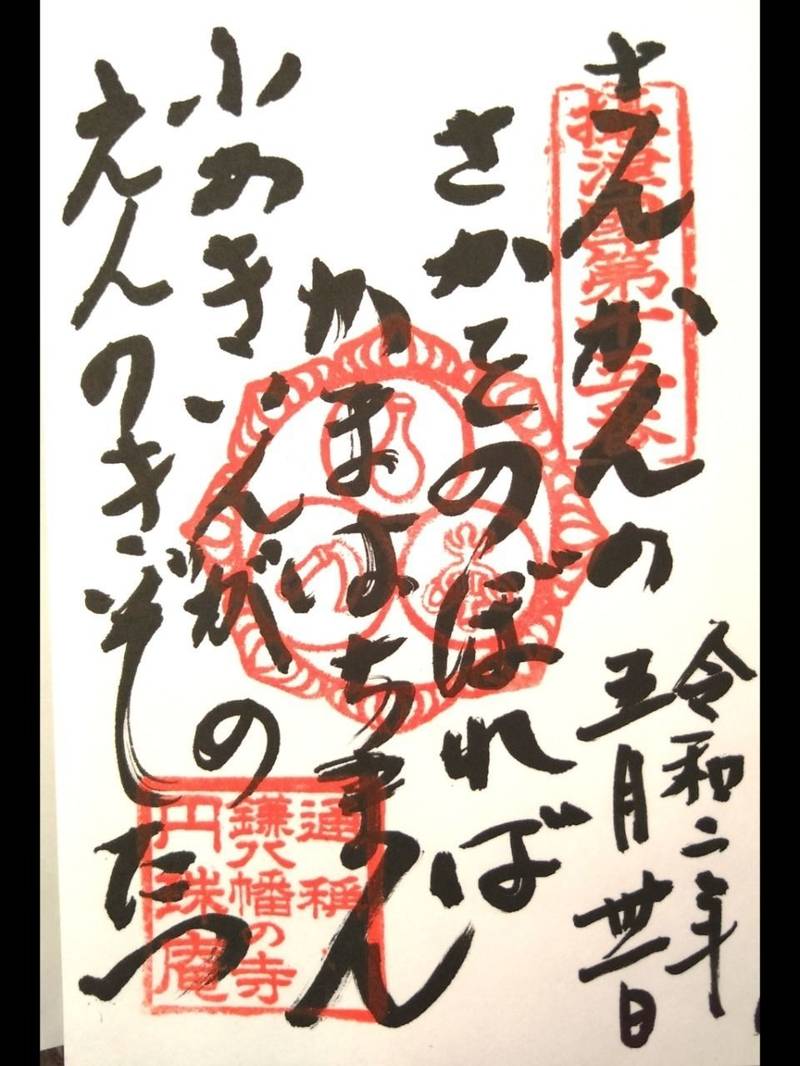 摂津國第十五番
さんかんの
さかをのぼれば
かまはちまん
ふかきいんがの
えんのきぞたつ
令和二年
五月卅一日
通称
鎌八幡の寺
円珠庵